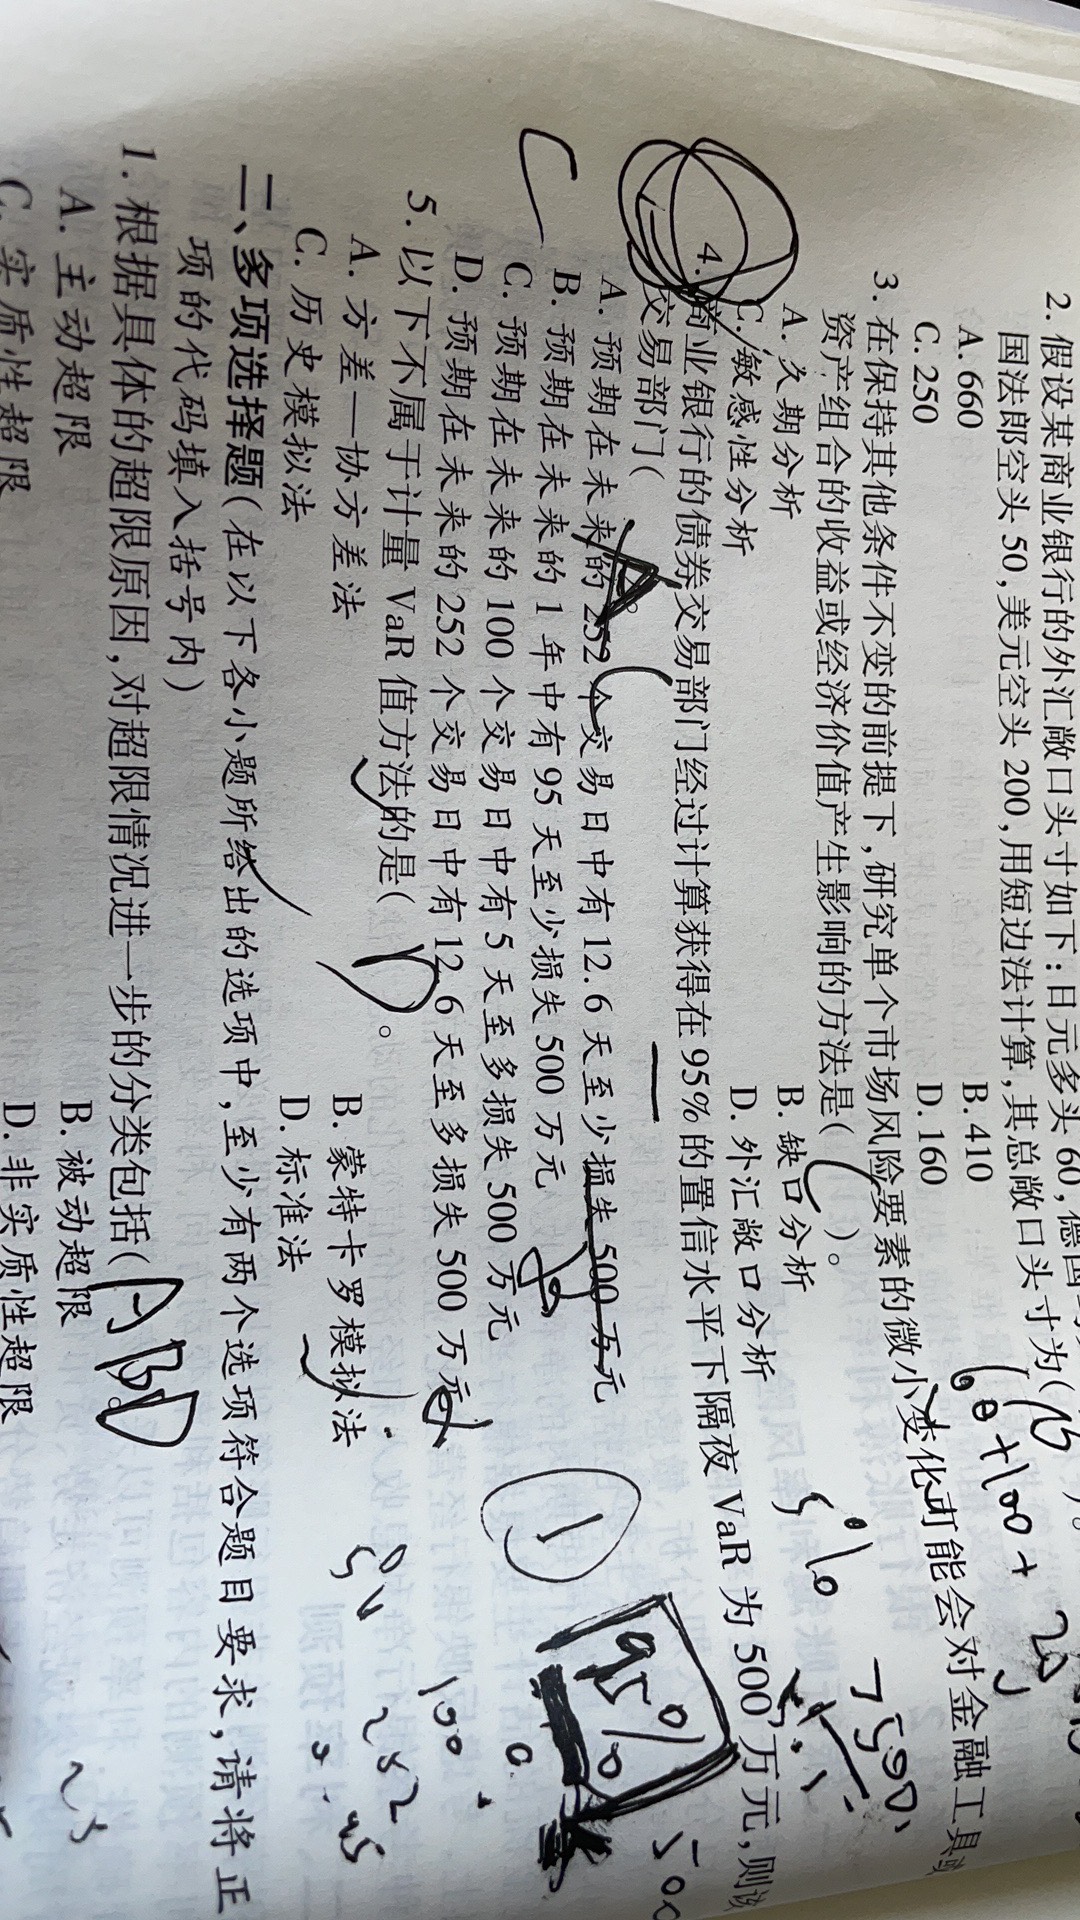 2. 假设某商业银行的外汇敞口头寸如下：日元多头 60,德国
国法郎空头 50,美元空头 200,用短边法计算,其总敞口头寸为( B )。
A. 660 B. 410
C. 250 D. 160
60+100+
3. 在保持其他条件不变的前提下,研究单个市场风险要素的微小变化可能会对金融工具或
资产组合的收益或经济价值产生影响的方法是( C )。
A. 久期分析 B. 缺口分析
C. 敏感性分析 D. 外汇敞口分析
5%
7500
4. 商业银行的债券交易部门经过计算获得在 95% 的置信水平下隔夜 VaR 为 500 万元,则该
交易部门( A )。
500
A. 预期在未来的 252 个交易日中有 12.6 天至少损失 500 万元
B. 预期在未来的 1 年中有 95 天至少损失 500 万元
C. 预期在未来的 100 个交易日中有 5 天至多损失 500 万元
D. 预期在未来的 252 个交易日中有 12.6 天至多损失 500 万元
C
1
95%
100
252
5. 以下不属于计量 VaR 值方法的是( D )。
A. 方差—协方差法 B. 蒙特卡罗模拟法
C. 历史模拟法 D. 标准法
二、多项选择题(在以下各小题所给出的选项中,至少有两个选项符合题目要求,请将正
项的代码填入括号内)
1. 根据具体的超限原因,对超限情况进一步的分类包括( ABD )。
A. 主动超限 B. 被动超限
C. 实质性超限 D. 非实质性超限